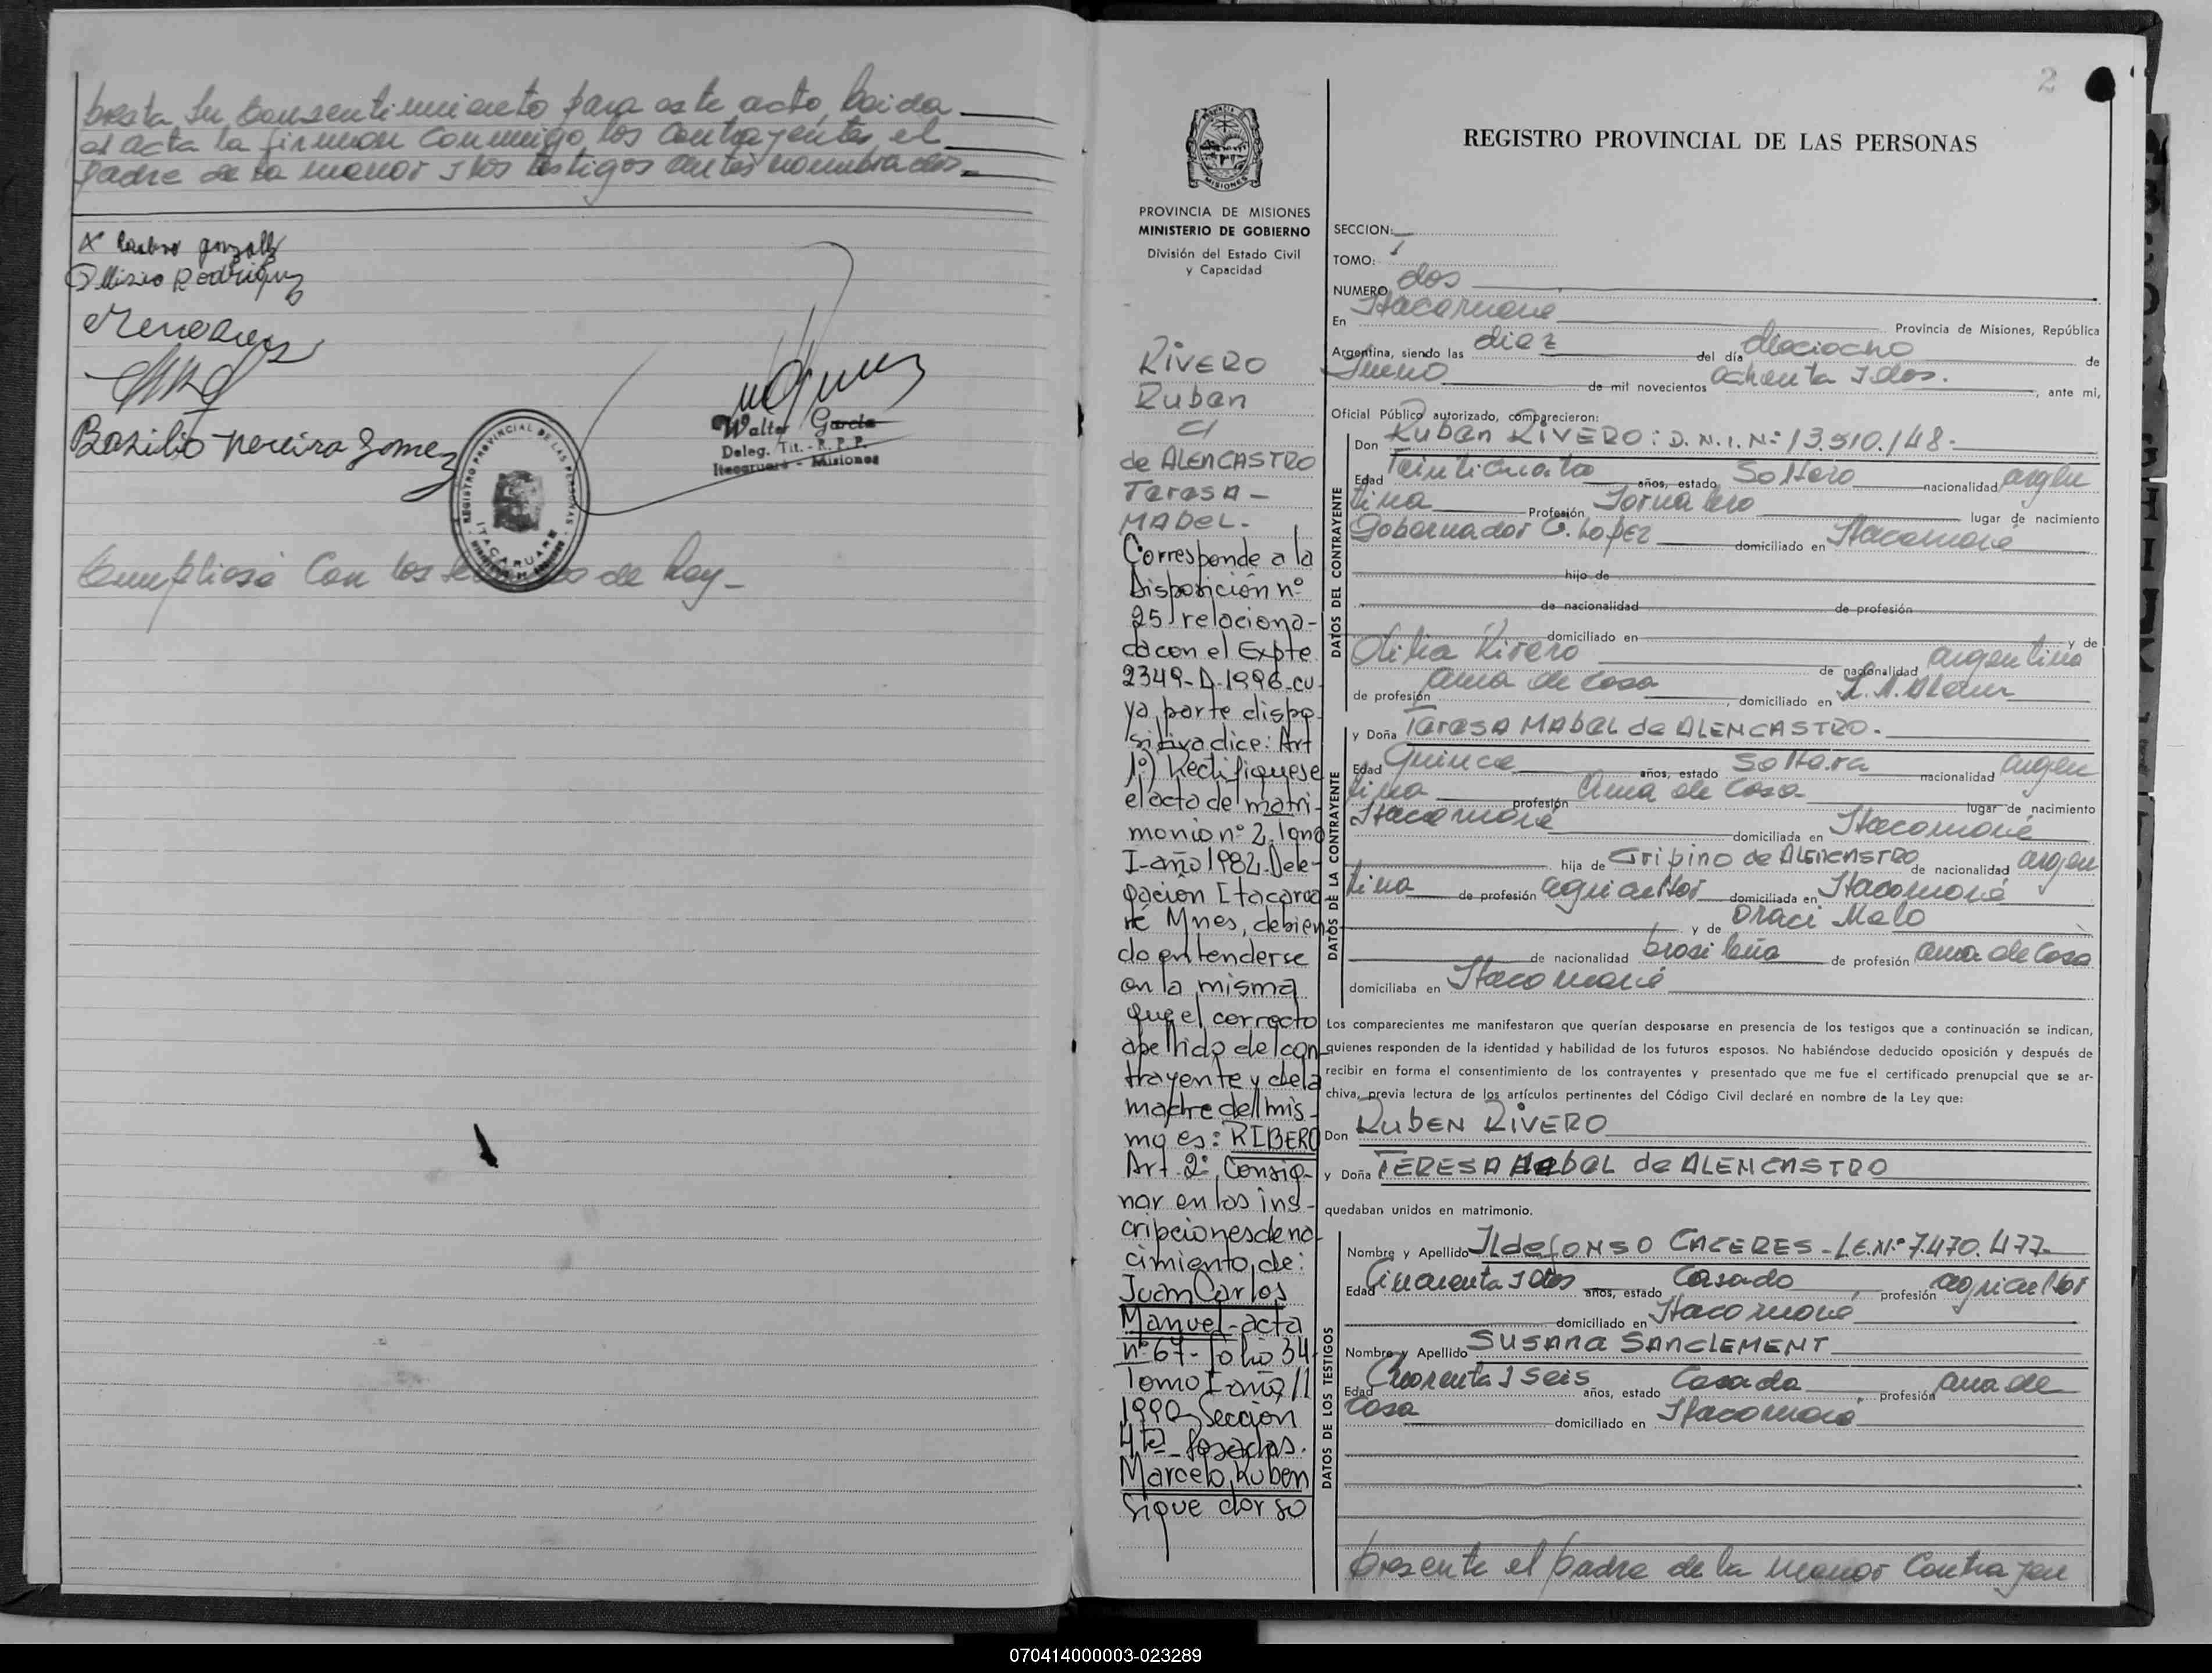 presta su consentimiento para este acto, leida
el acta la firman conmigo los contrayentes, el
padre de la menor y los testigos antes nombrados.
Elisio Rodriguez
Basilio Pereira Gomez
Walter Garcia
Deleg. Tit. - R. P. P.
Itacaruaré - Misiones
REGISTRO PROVINCIAL DE LAS PERSONAS
ITACARUARE
Cumpliose con los de Ley -
2
PROVINCIA DE MISIONES
MINISTERIO DE GOBIERNO
División del Estado Civil
y Capacidad
RIVERO
Ruben
c/
de ALENCASTRO
Teresa -
MABEL -
Corresponde a la
Disposición nº
25 relaciona-
da con el Expte
2349-D-1996-cu
ya parte dispo-
sitiva dice: Art
1º) Rectifiquese
el acta de matri-
monio nº 2, Tomo
I-año 1982. Dele-
gación Itacarua
ré Mnes, debien
do entenderse
en la misma
que el correcto
apellido del con-
trayente y de la
madre del mis-
mo es: RIBERO
Art. 2º, Consig-
nar en las ins-
cripciones de na-
cimiento, de:
Juan Carlos
Manuel-acta
nº 67-folio 34
Tomo I-año
1990-Sección
4ta Posadas.
Marcelo, Ruben
Sigue dorso
REGISTRO PROVINCIAL DE LAS PERSONAS
SECCION:
TOMO: I
NUMERO dos
En Itacaruare Provincia de Misiones, República
Argentina, siendo las diez del día dieciocho de
Enero de mil novecientos ochenta y dos., ante mi,
Oficial Público autorizado, comparecieron:
DATOS DEL CONTRAYENTE
Don Ruben RIVERO: D.N.I.Nº 13.510.148-
Edad Veinticuatro años, estado Soltero nacionalidad argen
tina Profesión Jornalero lugar de nacimiento
Gobernador L. Lopez domiciliado en Itacaruaré
hijo de
de nacionalidad de profesión
domiciliado en y de
Otilia Rivero de nacionalidad argentina
de profesión ama de casa, domiciliado en L. N. Alem
DATOS DE LA CONTRAYENTE
y Doña Teresa MABEL de ALENCASTRO.
Edad Quince años, estado Soltera nacionalidad argen
tina profesión ama de casa lugar de nacimiento
Itacaruaré domiciliada en Itacaruaré
hija de Gripino de ALENCASTRO de nacionalidad argen
tina de profesión agricultor domiciliada en Itacaruaré
y de Oraci Melo
de nacionalidad brasileña de profesión ama de casa
domiciliaba en Itacaruaré
Los comparecientes me manifestaron que querían desposarse en presencia de los testigos que a continuación se indican,
quienes responden de la identidad y habilidad de los futuros esposos. No habiéndose deducido oposición y después de
recibir en forma el consentimiento de los contrayentes y presentado que me fue el certificado prenupcial que se ar-
chiva, previa lectura de los artículos pertinentes del Código Civil declaré en nombre de la Ley que:
Don RUBEN RIVERO
y Doña TERESA MAbEL de ALENCASTRO
quedaban unidos en matrimonio.
DATOS DE LOS TESTIGOS
Nombre y Apellido ILdeFONSO CACERES - L.E.Nº 7.470.477-
Edad Cincuenta y dos años, estado Casado, profesión agricultor
domiciliado en Itacaruaré
Nombre y Apellido SUSANA SANCLEMENT
Edad Cuarenta y seis años, estado Casada profesión ama de
casa domiciliado en Itacaruaré
presente el padre de la menor Contrayen
070414000003-023289